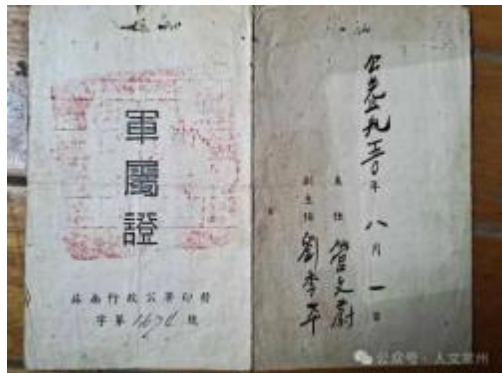 軍屬證
蘇南行政公署印發
字第1676號
公元一九五〇年八月一日
主任 管文蔚
副主任 劉季平
公众号·人文常州